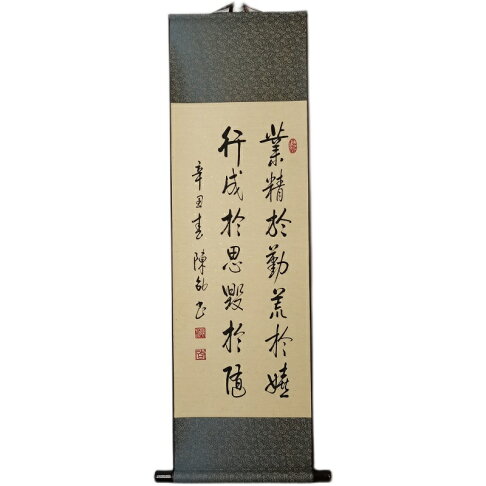 業精於勤荒於嬉
行成於思毀於随
辛丑春陳